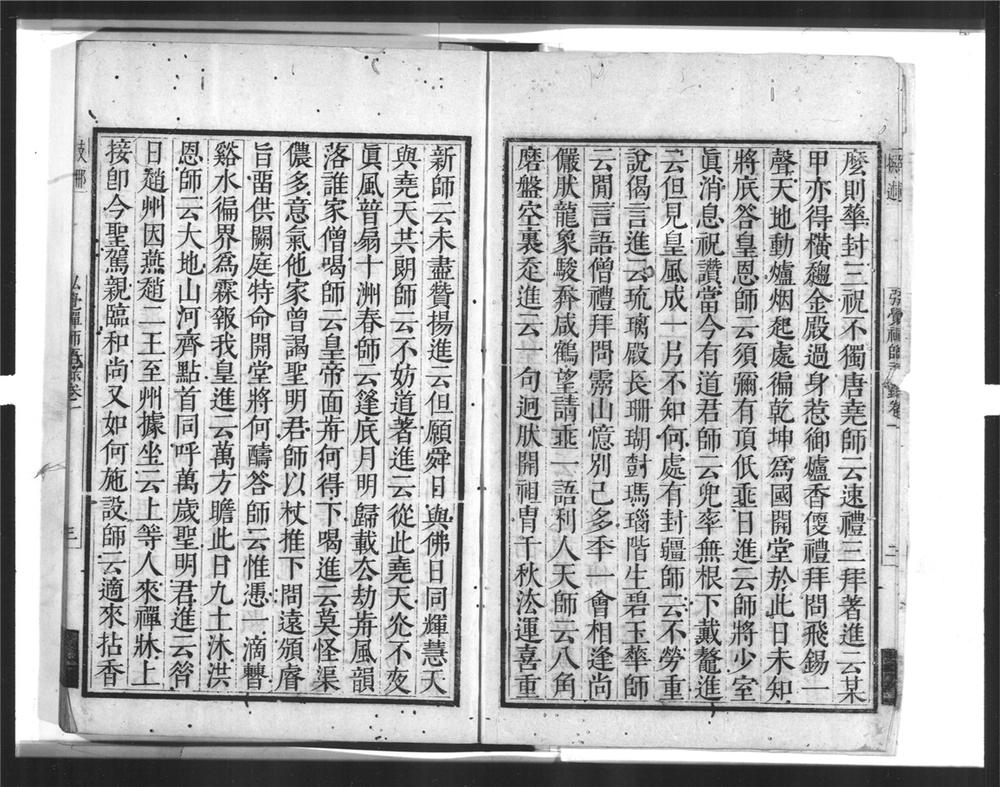 麼則華封三祝不獨唐堯師云速禮三拜著進云某
甲亦得橫趨金殿過身惹御爐香便禮拜問飛錫一
聲天地動爐烟起處徧乾坤爲國開堂於此日未知
將底答皇恩師云須彌有頂低垂日進云師將少室
眞消息祝讚當今有道君師云兜率無根下戴鼇進
云但見皇風成一片不知何處有封疆師云不勞重
說偈言進云琉璃殿長珊瑚樹瑪瑙階生碧玉華師
云閒言語僧禮拜問靈山憶別已多年一會相逢尚
儼然龍象駿奔咸鶴望請垂一語利人天師云八角
磨盤空裏走進云一句迥然開祖冑千秋法運喜重
新師云未盡贊揚進云但願舜日與佛日同輝慧天
與堯天共朗師云不妨道著進云從此堯天光不夜
眞風普扇十洲春師云篷底月明歸載去劫前風韻
落誰家僧喝師云皇帝面前何得下喝進云莫怪渠
儂多意氣他家曾謁聖明君師以杖推下問遠頒睿
旨留供闕庭特命開堂將何醻答師云惟憑一滴曹
谿水徧界爲霖報我皇進云萬方瞻此日九土沐洪
恩師云大地山河齊點首同呼萬歲聖明君進云答
日趙州因燕趙二王至州據坐云上等人來禪牀上
接卽今聖駕親臨和尚又如何施設師云適來拈香